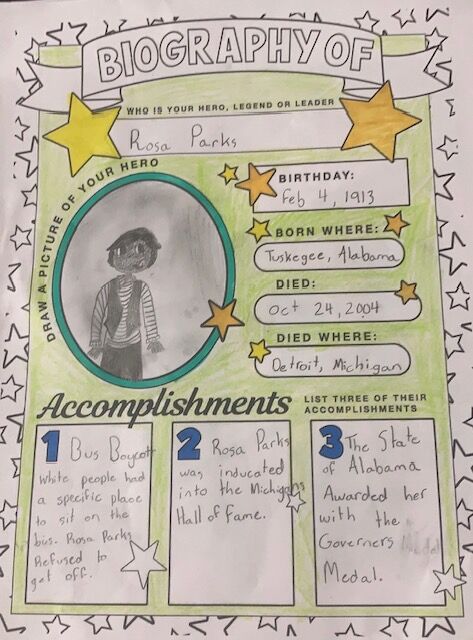 BIOGRAPHY OF
WHO IS YOUR HERO, LEGEND OR LEADER
Rosa Parks
DRAW A PICTURE OF YOUR HERO
BIRTHDAY:
Feb 4, 1913
BORN WHERE:
Tuskegee, Alabama
DIED:
Oct 24, 2004
DIED WHERE:
Detroit, Michigan
Accomplishments
LIST THREE OF THEIR
ACCOMPLISHMENTS
1 Bus Boycott
White people had
a specific place
to sit on the
bus. Rosa Parks
Refused to
get off.
2 Rosa Parks
was inducated
into the Michigans
Hall of Fame.
3 The State
of Alabama
Awarded her
with the
Governers
Medal.